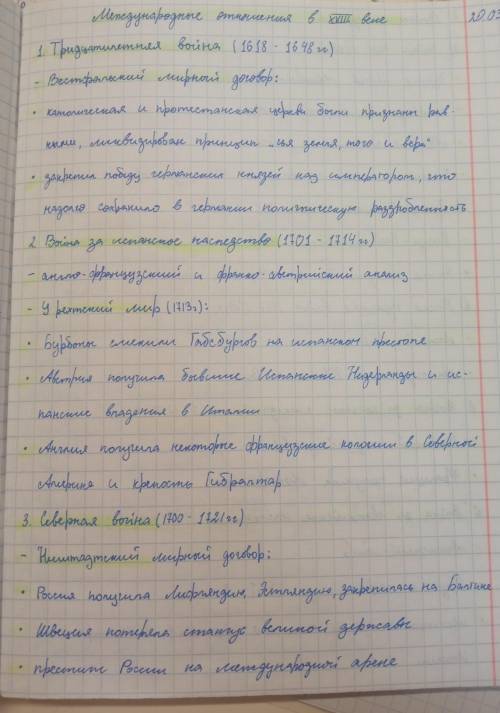 Международные отношения в XVIII веке 20.03
1. Тридцатилетняя война (1618 - 1648 гг)
- Вестфальский мирный договор:
• католическая и протестанская церкви были признаны рав-
ными, ликвидирован принцип „чья земля, того и вера"
• закрепил победу германских князей над императором, что
надолго сохранило в германии политическую раздробленность
2. Война за испанское наследство (1701 - 1714 гг)
- англо-французский и франко-австрийский анализ
- Утрехтский мир (1713г):
• Бурбоны сменили Габсбургов на испанском престоле
• Австрия получила бывшие Испанские Нидерланды и ис-
панские владения в Италии
• Англия получила некоторые французские колонии в Северной
Америке и крепость Гибралтар
3. Северная война (1700 - 1721 гг)
- Ништадтский мирный договор:
• Россия получила Лифляндию, Эстляндию, закрепилась на Балтике
• Швеция потеряла статус великой державы
• престиж России на международной арене